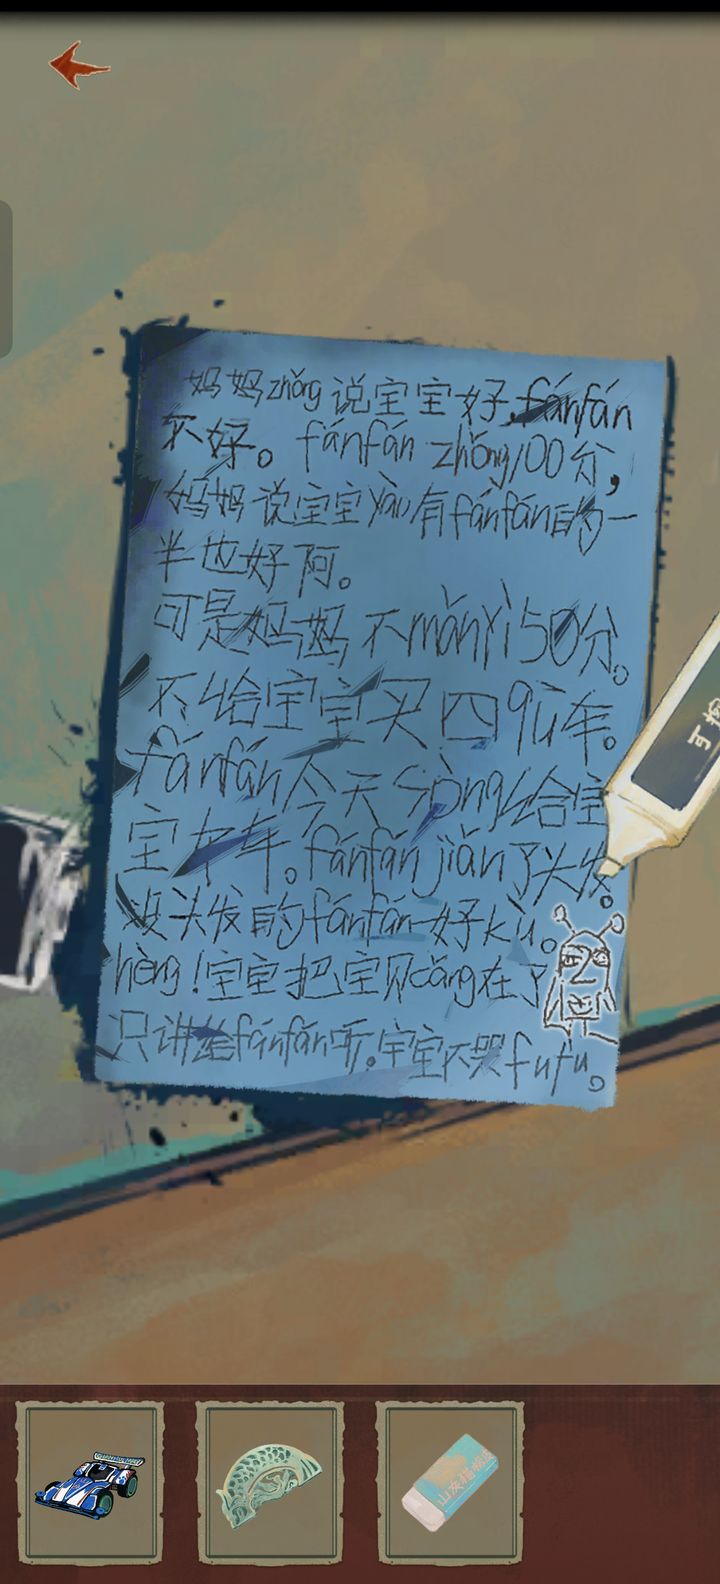 妈妈zhǒng说宝宝好，fánfán
不好。fánfán zhǒng100分，
妈妈说宝宝yào有fánfán的一
半也好阿。
可是妈妈不mǎnyì50分。
不给宝宝买四qū车。
fánfán今天sòng给宝
宝车。fánfán jiǎn了头发。
没头发的fánfán好kù。
hèng！宝宝把宝贝cáng在了
只讲给fánfán听。宝宝不哭fufu。